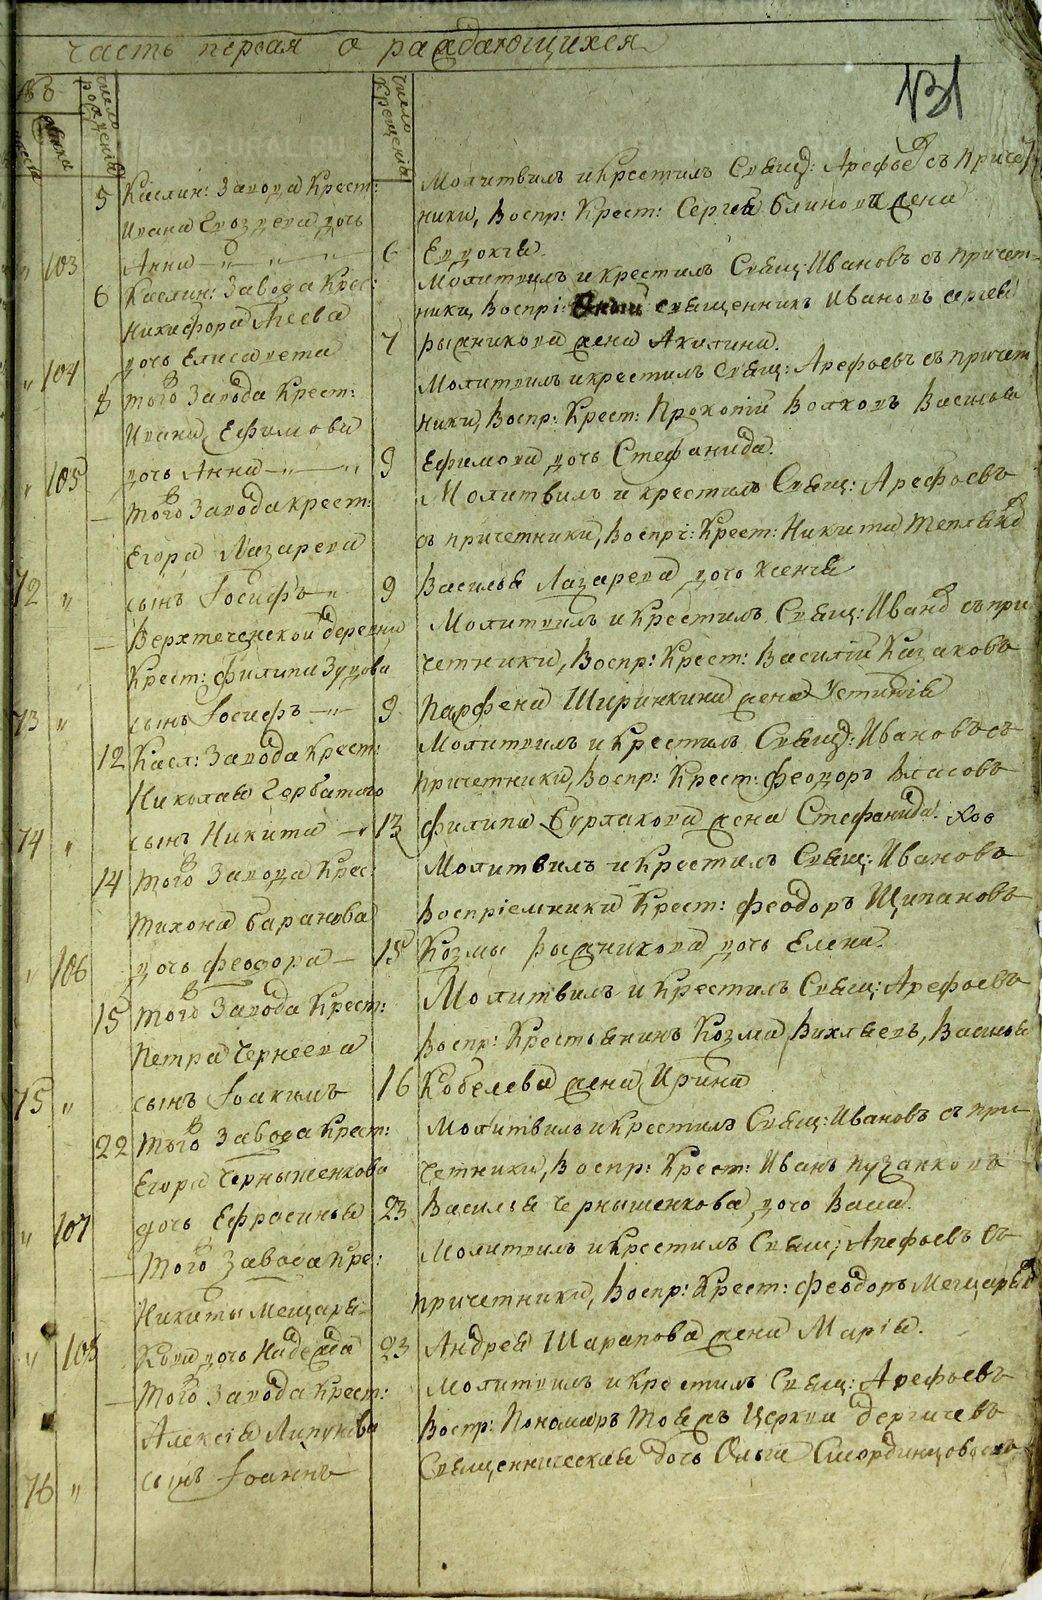 часть первая о раждающихся
131
число рожденія
число Крещенія
5 Каслин: Завода Крест:
Молитвилъ и Крестилъ Свящ: Арефьев съ приче
Ивана дочь
ники, Воспр: Крест: Сергей Блиновъ жена
103 Анна 6 Евдокия
6 Каслин: Завода Крес:
Молитвилъ и крестилъ Свящ: Ивановъ съ причет
Никифора Агеева
ники, Воспрі: священникъ Ивановъ Сергея
104 дочь Елисавета 7 рыжникова жена Акилина.
8 того Завода Крест:
Молитвилъ и крестилъ Свящ: Арефьевъ съ причет
Ивана Ефимова
ники, Воспр: Крест: Прокопій Волковъ Василья
105 дочь Анна 9 Ефимова дочь Стефанида.
того Завода крест:
Молитвилъ и крестилъ Свящ: Арефьевъ
Егора Лазарева
съ причетники, Воспр: Крест: Никита
72 сынъ Іосифъ 9 Василья Лазарева дочь Ксения
Верхтеченской деревни
Молитвилъ и Крестилъ Свящ: Иванов съ при
Крест: филипа Зуева
четники, Воспр: Крест: Василій Казаковъ
73 сынъ Іосифъ 9 Парфена Ширинкина жена Устинія
12 Касл: Завода Крест:
Молитвилъ и Крестилъ Свящ: Ивановъ съ
Николая Горбатого
причетники, Воспр: Крест: феодоръ Власовъ
74 сынъ Никита 13 филипа Бурлакова жена Стефанида.
14 того Завода Крес:
Молитвилъ и Крестилъ Свящ: Ивановъ
Тихона Баранова
Воспріемники Крест: феодоръ Щипановъ
106 дочь феодора 15 Козмы рыжникова дочь Елена.
15 того Завода Крест:
Молитвилъ и Крестилъ Свящ: Арефьевъ
Петра Чернеева
Воспр: Крестьянинъ Козма Вихляевъ, Василья
75 сынъ Іоакимъ 16 Кобелева жена Ирина
22 того Завода Крест:
Молитвилъ и Крестилъ Свящ: Ивановъ съ при
Егора Чернышенкова
четники, Воспр: Крест: Иванъ Пузанковъ
107 дочь Ефросинья 23 Василья Чернышенкова дочь Васа.
того Завода Кре:
Молитвилъ и Крестилъ Свящ: Арефьевъ съ
Никиты Мещаря
причетники, Воспр: Крест: Феодоръ Мещаряков
108 кова дочь Надежда 23 Андрея Шарапова жена Марія.
того Завода Крест:
Молитвилъ и Крестилъ Свящ: Арефьевъ
Алексія Липунова
Воспр: Пономаръ тояжъ Церкви Дергачевъ
76 сынъ Іоаннъ
Священническая дочь Ольга